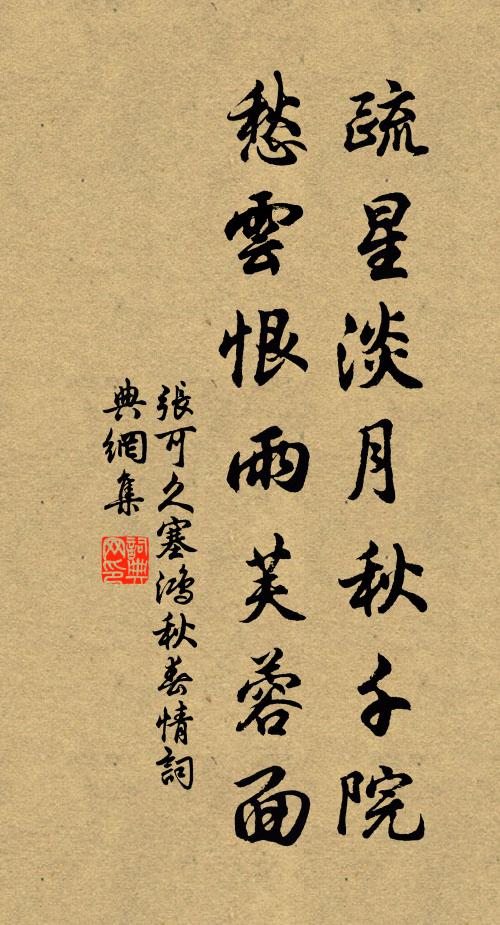 疏星淡月秋千院
愁雲恨雨芙蓉面
張可久塞鴻秋春情詞
典網集
詞典
网印